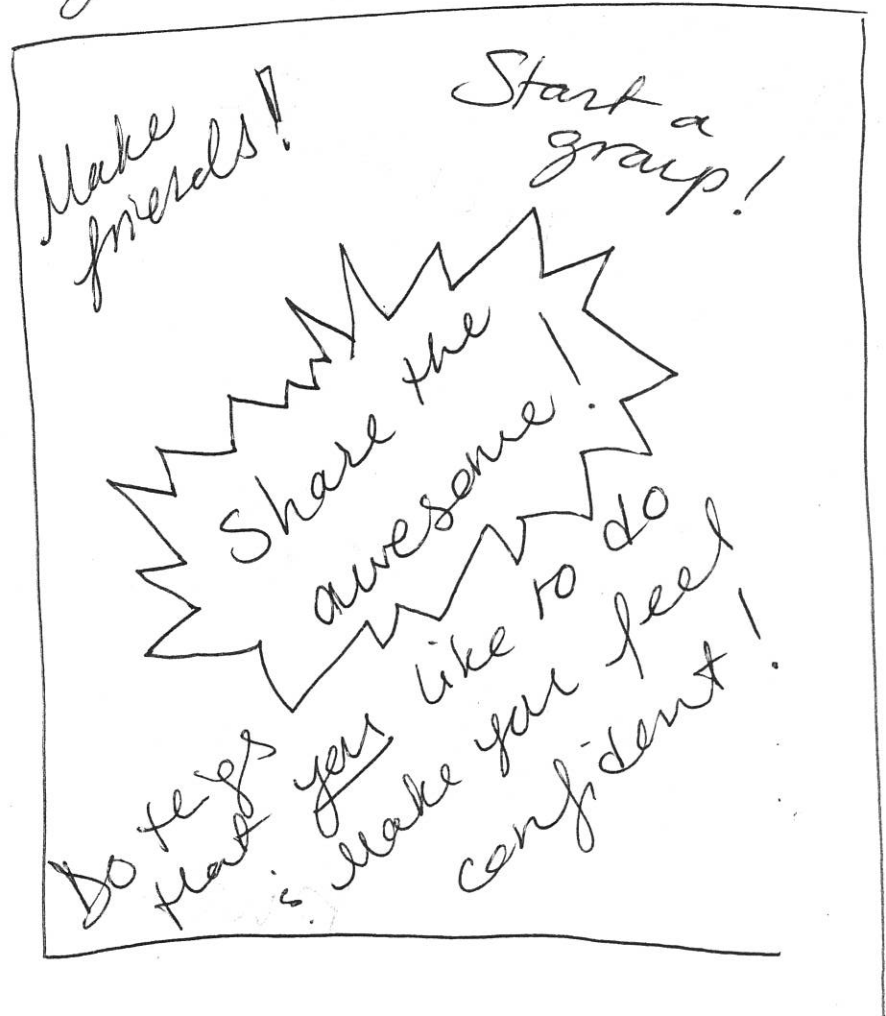 Make
friends!
Start a
group!
Share the
awesome!
Do things
that you like to do
& make you feel
confident!